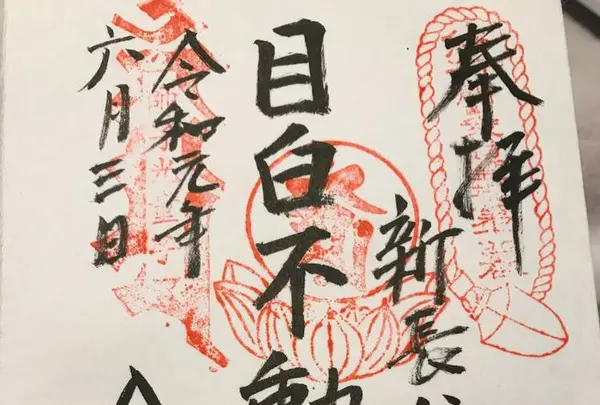 奉拝
新長
目白不動
令和元年
六月三日